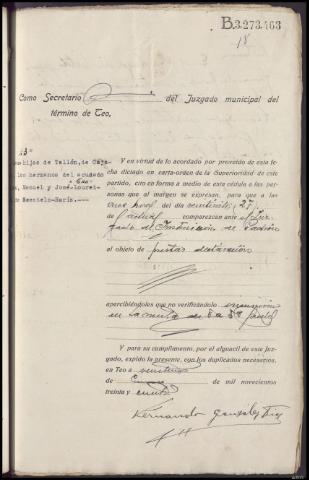 B.3.273.163
18
Como Secretario del Juzgado municipal del
término de Teo,
hijos de Tallón, de Ca
los hermanos del
Manuel y José
Y en virtud de lo acordado por proveído de esta fe-
cha dictado en carta-orden de la Superioridad de este
partido, cito en forma a medio de esta cédula a las perso-
nas que al margen se expresan, para que a las
once del día veintisiete 27
de actual comparezcan ante el Juz-
gado de Instrucción de Padrón
al objeto de prestar declaración
apercibiéndoles que no verificándolo
en la multa de 5 a 50
Y para su cumplimento, por el alguacil de este Juz-
gado, expido la presente, con los duplicados necesarios,
en Teo a
de Enero de mil novecientos
treinta y cuatro
Fernando Gonzalez